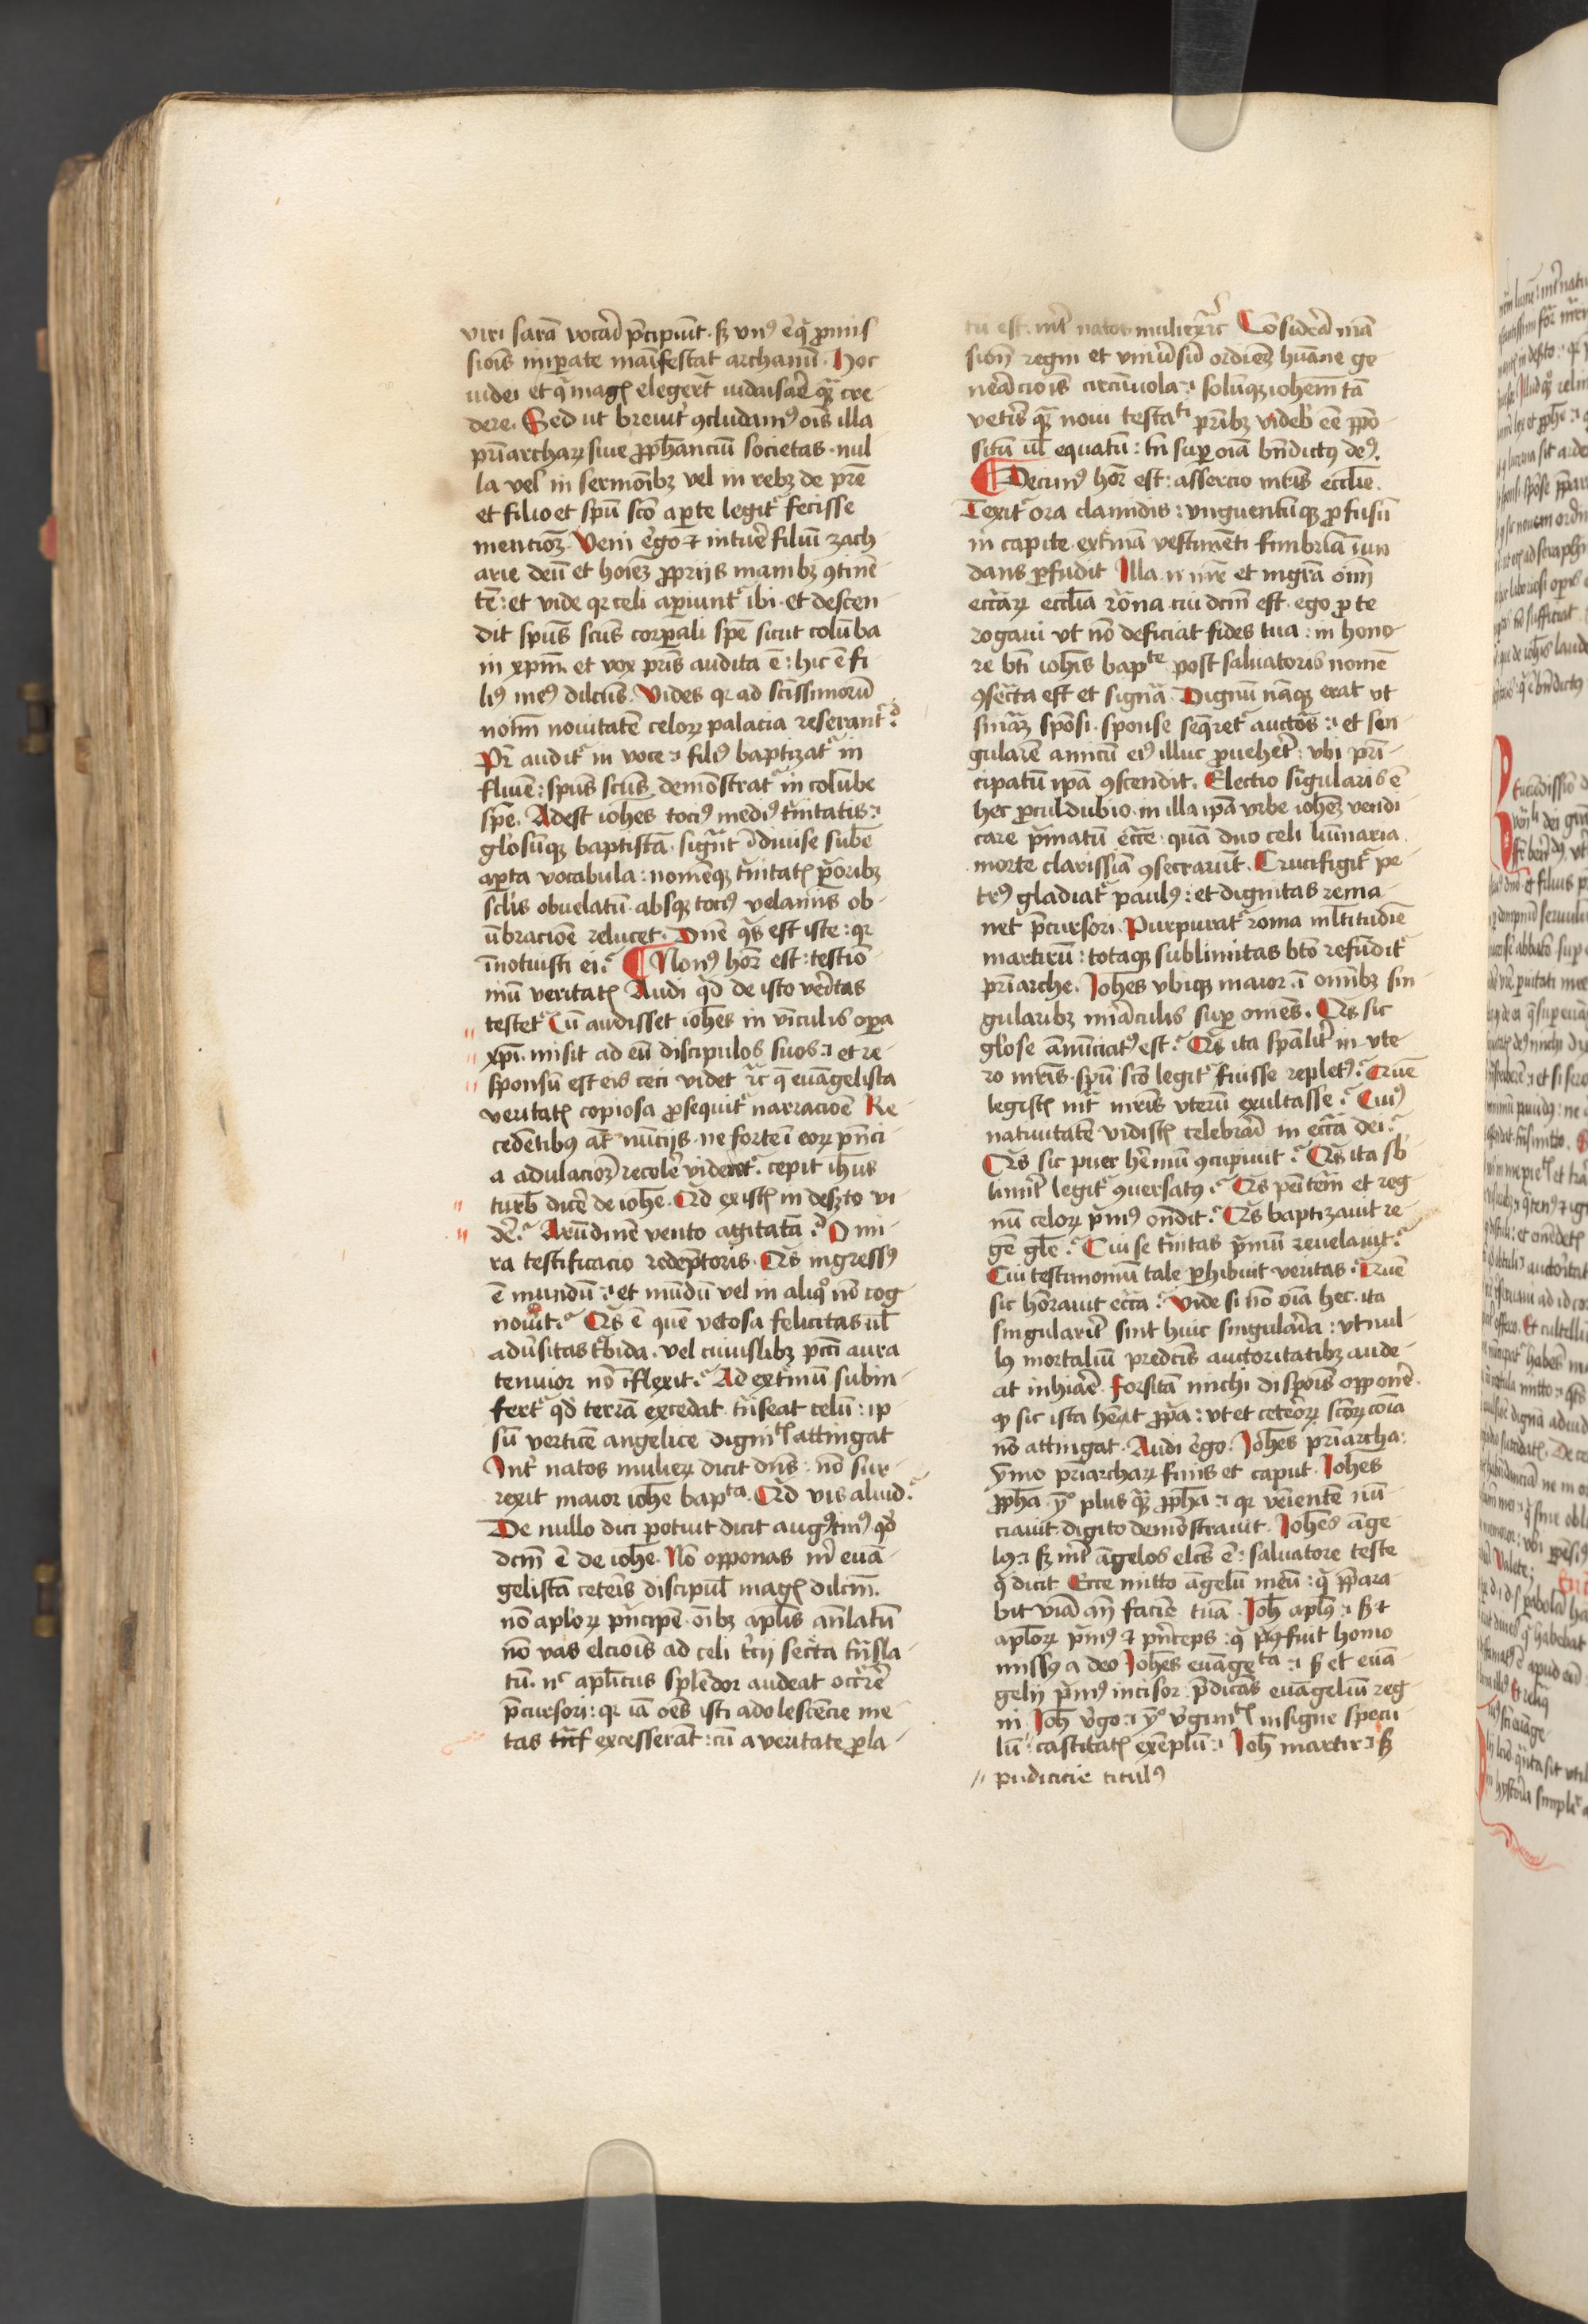 viri sarā vocād p̄cipiūt · sꝫ vnꝰ ē q̄ p̱mis
sioīs imꝑate maīfestat archanū · Hoc
iudei et q̄ magꝭ elegert̄ iudaisare qᷓꝫ cre
dere. Sed ut breuit̾ ꝯcludamꝰ oīs illa
pr̄iarchaꝝ siue ꝓph̄anciū societas · nul
la vel in sermōibꝫ vel in rebꝫ de pr̄e
et filio et spū sc̄o aꝑte legit᷑ fecisse
mencioꝫ. Veni ergo ⁊ intuē filiū zach
arie deū et hoīeꝫ ꝓprijs manibꝫ ꝯtinē
tē: et vide qꝛ celi aꝑiunt᷑ ibi · et descen
dit spūs scūs corꝑali spē sicut colūba
in xpm̄ et vox pr̄is audita ē: hic ē fi
liꝰ meꝰ dilcūs. Vides qꝛ ad scīssimorū
noīm nouitatē celoꝝ palacia reserant᷑.
Pr̄ audit᷑ in voce: filiꝰ baptizat᷑ in
fluīe: spūs scūs demōstrat᷑ in colūbe
spē. Adest ioh̄es tociꝰ mediꝰ t̄nitatis:
gl̄osūqꝫ baptistā · sigᷓnt īdiuise sub̄e
aꝑta vocabula: nomēqꝫ t̄nitatꝭ p̄oribꝫ
scl̄is obuelatū · absqꝫ tociꝰ velamīs ob-
ūbracioē relucet. Dn̄e q̄s est iste: qꝛ
īnotuisti ei. Nonꝰ honor̄ est: testio-
niū veritatꝭ Audi qd̄ de isto vēitas
testet᷑ Cū audisset ioh̄es in vīculis oꝑa
xp̄i · misit ad eū discipulos suos: et re
sponsū est eis ceci vidēt ⁊c̄ q̄ euāgelista
veritatꝭ copiosa ꝓsequit᷑ narracioē Re
cedētibus at̄ nūcijs · ne forte ī eoꝝ p̄nci
a adulacioꝫ recole᷑ videret᷑ · cepit ih̄us
turb̄ dicē de ioh̄e. Qd̄ existꝭ in deẜto vi
dē. Arūdinē vento agitatā. O mi-
ra testificacio redēptoris. Q̄s ingressꝰ
ē mundū: et mūdū vel in aliqͦ nō cog
nouit. Q̄s ē quē vētosa felicitas ul̄
adūsitas tᷣbida · vel cuiuslibꝫ pcc̄i aura
tenuior nō īflexit. Ad extᷓmū subin-
fert᷑ qd̄ terrā excedat · tᷓnseat celū: ip
sū verticē angelice dignitꝭ attingat
Int̄ natos mulieꝝ dicit dn̄s · nō sur-
rexit maior ioh̄e bapᵗᵃ. Qd̄ vis aliud.
De nullo dici potuit dicit augꝰtinꝰ qd̄
dcm̄ ē de ioh̄e. Nō opponas m̄ euā-
gelistā ceteris discipul̄ magꝭ dilcm̄.
nō aploꝝ p̄ncipē · oībꝫ apl̄is anlatū
nō vas elcioīs ad celi t̄cij secᷓta tᷓnsla
tū. n͛ apl̄icus splēdor audeat occr̄rē
p̄cursori: qꝛ iā oēs isti adolescēcie me
tas trāss excesserāt: cū a veritate ꝓla-
tū est · int̄ natos mulieꝝ ⁊c̄ Cōsidera mā
sion̄ regni et vniūsū ordieꝫ hūane ge
nēacioīs circūuola: solūqꝫ ioh̄em tā
vetis qᷓꝫ noui testatⁱ pr̄ibꝫ videb̄ eē ꝓpo-
sitū ul̄ equatū: tn̄ suꝑ oīa bn̄dictꝰ deꝰ.
Decimꝰ honor̄ est: assercio mr̄is eccl̄ie.
Texit᷑ ora clamidis: vnguentūqꝫ ꝓfusū
in capite · extᷓmā vestimēti fimbriā īun
dans ꝑfudit Illa · n · mr̄e et mgr̄a oīm
ecciaꝝ eccl̄ia rōana cui dcm̄ est · ego ꝓ te
rogaui vt nō deficiat fides tua: in hono
re bt̄i ioh̄is bapᵗᵉ post saluatoris nomē
ꝯsecᷓta est et signᷓa. Dignū nāqꝫ erat vt
sponsi · sponse seq̄ret᷑ auctōs: et sin
gularē amicū eiꝰ illuc ꝓuehet̾: vbi prī-
cipatū ipā ꝯscendit. Electio sīgularis ē
hec ꝓculdubio · in illa ipā vrbe ioh̄eꝫ vendi
care p̄matū ecc̄e · quā duo celi lūinaria
morte clarissīā ꝯsecrarūt. Crucifigit᷑ pe
trꝰ gladiat᷑ paulꝰ: et dignitas rema-
net p̄cursori. Purpurat᷑ roma ml̄titudīe
martirū: totaqꝫ sublimitas bt̄o refūdit᷑
pr̄iarche. Ioh̄es vbiqꝫ maior · ī omībꝫ sin
gularibꝫ mirāculis suꝑ omēs. Q̄s sic
gl̄ose anūciatꝰ est. Q̄s ita spāalit̄ in vte
ro mr̄is · spū sc̄o legit᷑ fuisse repletꝰ. Quē
legistꝭ int̄ mr̄is vterū exultasse. Cuiꝰ
natiuitatē vidistꝭ celebrād in ecc̄ia dei.
Q̄s sic puer herēmū ꝯcupiuit. Q̄s ita sb̄
limit̄ legit᷑ ꝯuersatꝰ. Q̄s pēitēm et reg
nū celoꝝ p̄mꝰ ondit. Q̄s baptizauit re-
gē gl̄e. Cui se t̄nitas p̄mū reuelauit.
Cui testimoniū tale ꝑhibuit veritas. Quē
sic honorauit ecc̄ia. Vide si nō oīa hec · ita
singularit̄ sint huic singularia: vt nul-
lꝰ mortaliū predcīs auctoritatibꝫ aude-
at inhiare. Forsitā michi disꝑoīs opponē.
ꝙ sic ista hēat ꝓpa: vt et ceteroꝝ scōꝝ coīa
nō attingat. Audi ergo. Ioh̄es pr̄iarcha:
ymo pr̄iarchaꝝ finis et caput. Iohēs
ꝓph̄a yͦ plus qᷓꝫ ꝓph̄a: qꝛ veīentē nū
ciauit digito demōstrauit. Ioh̄es āge
lꝰ: sꝫ int̄ āgelos elcūs ē: saluatore teste
q̄ dicit Ecce mitto āgelū meū: q̄ p̄ꝑara
bit viā an̄ faciē tuā. Ioh̄ aplꝰ: sꝫ ⁊
aploꝝ p̄mꝰ ⁊ p̄nceps: q̄ fuit homo
missꝰ a deo Ioh̄es euāgeᵗᵃ: sꝫ et euā
gelij p̄mꝰ incisor · p̄dicās euāgeliū reg
ni. Ioh̄ v̾go: yͦ v̾ginitꝭ insigne specu
lū: castitatꝭ exēplū: Ioh̄ martir: sꝫ
pudicicie titulꝰ